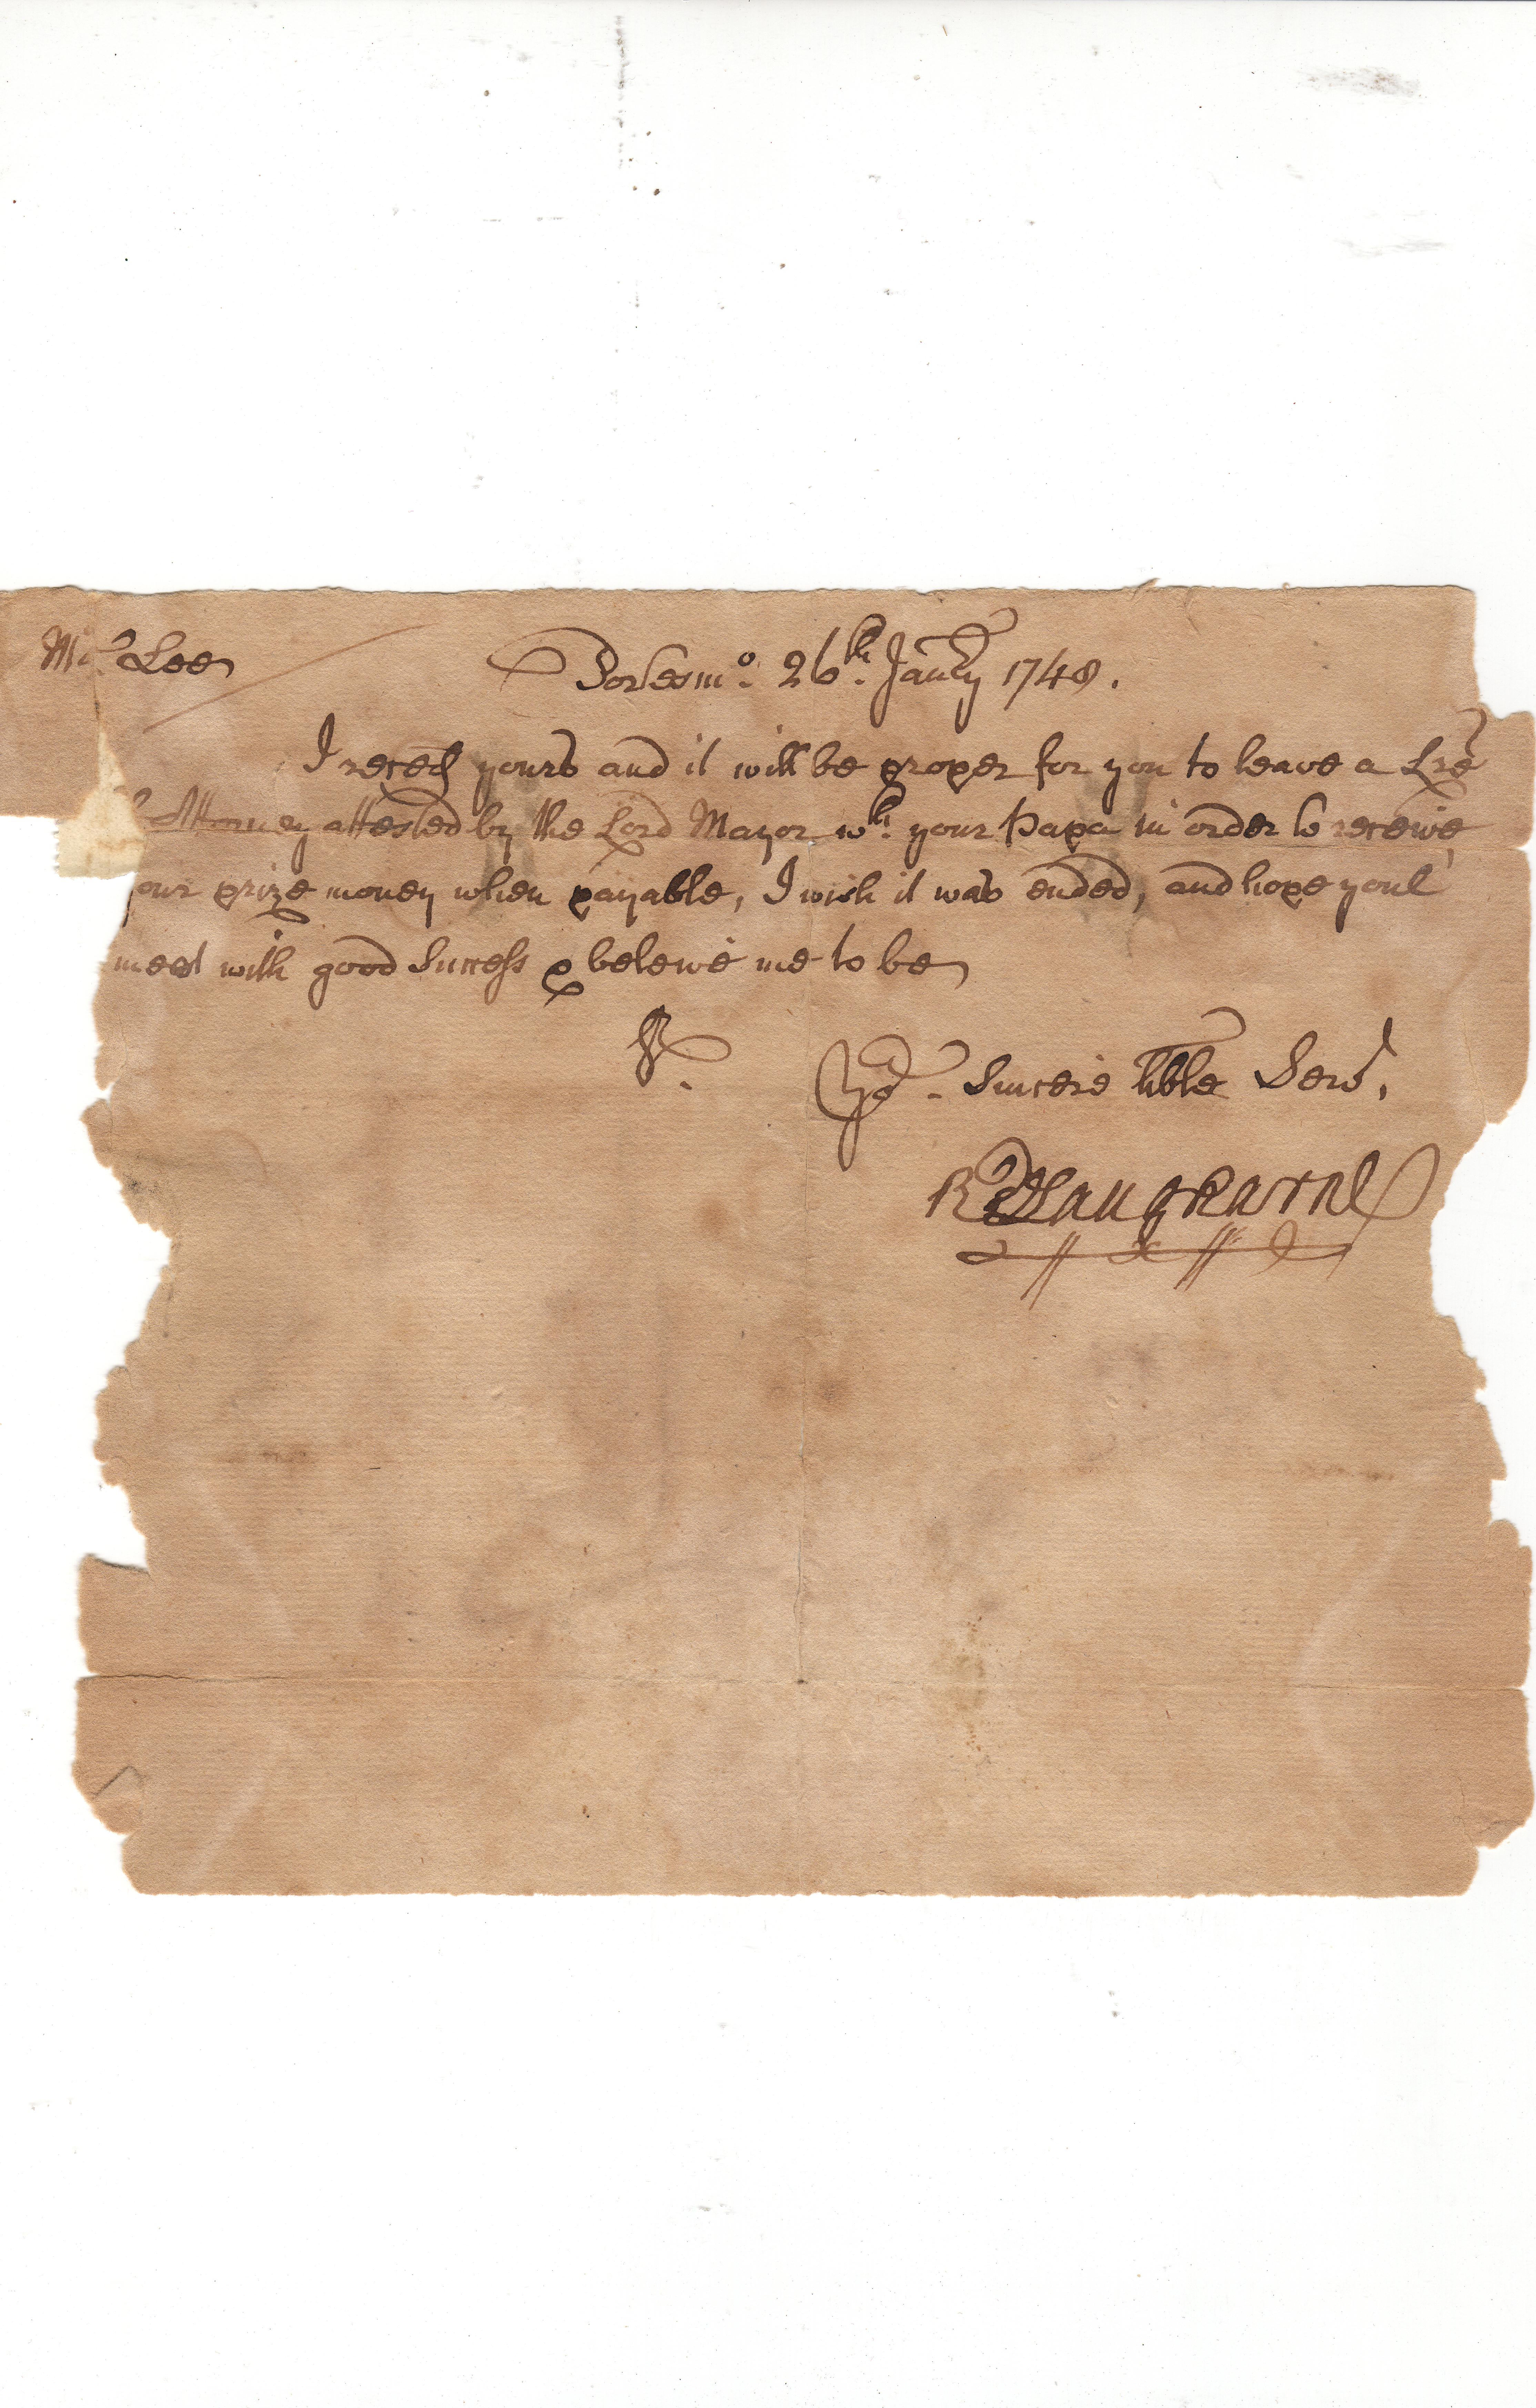 Mr. Lee Portsmo. 26th. Janry 1748.
I receed yours and it will be proper for you to leave a Lre
Attorney attested by the Lord Mayor wth. your Papa in order to receive
our prize money when payable, I wish it was ended, and hope youl
meet with good Success & beleive me to be
Sr.
Yor. Sincere hble Servt,